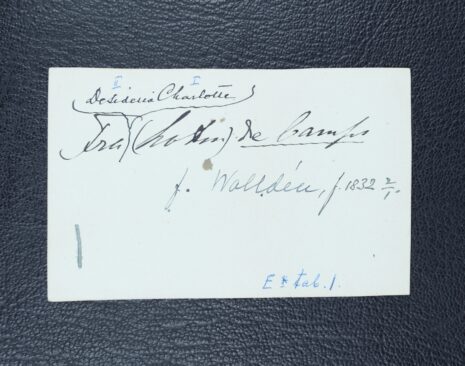 II I
Desideria Charlotte
Fru (Lotten) De Camps
f. Walldén, f. 1832 2/1.
E tab. 1.